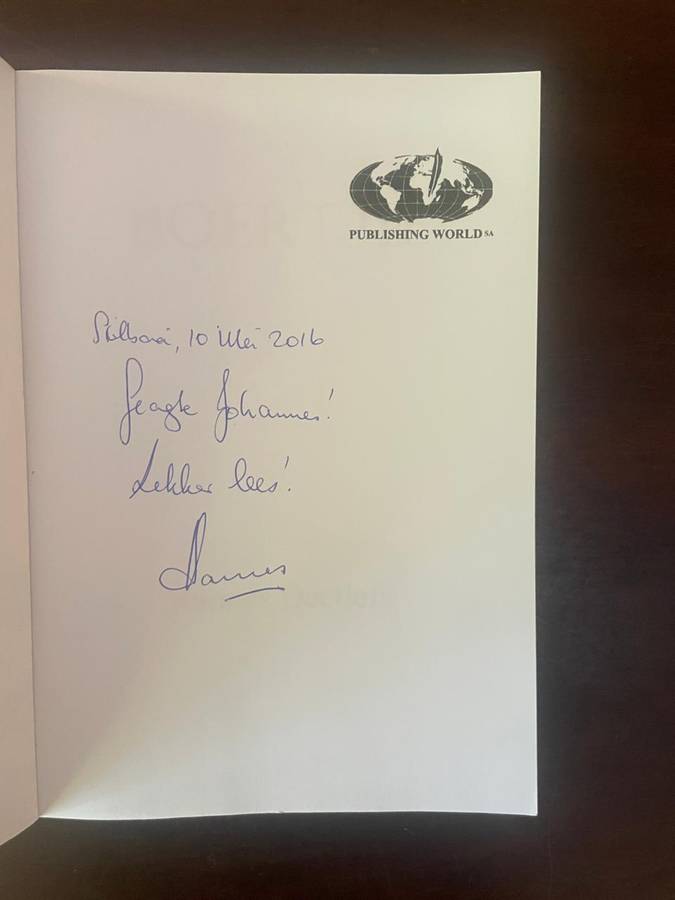 PUBLISHING WORLD SA
Stilbaai, 10 Mei 2016
Geagte Johannes!
Lekker lees!
Hannes